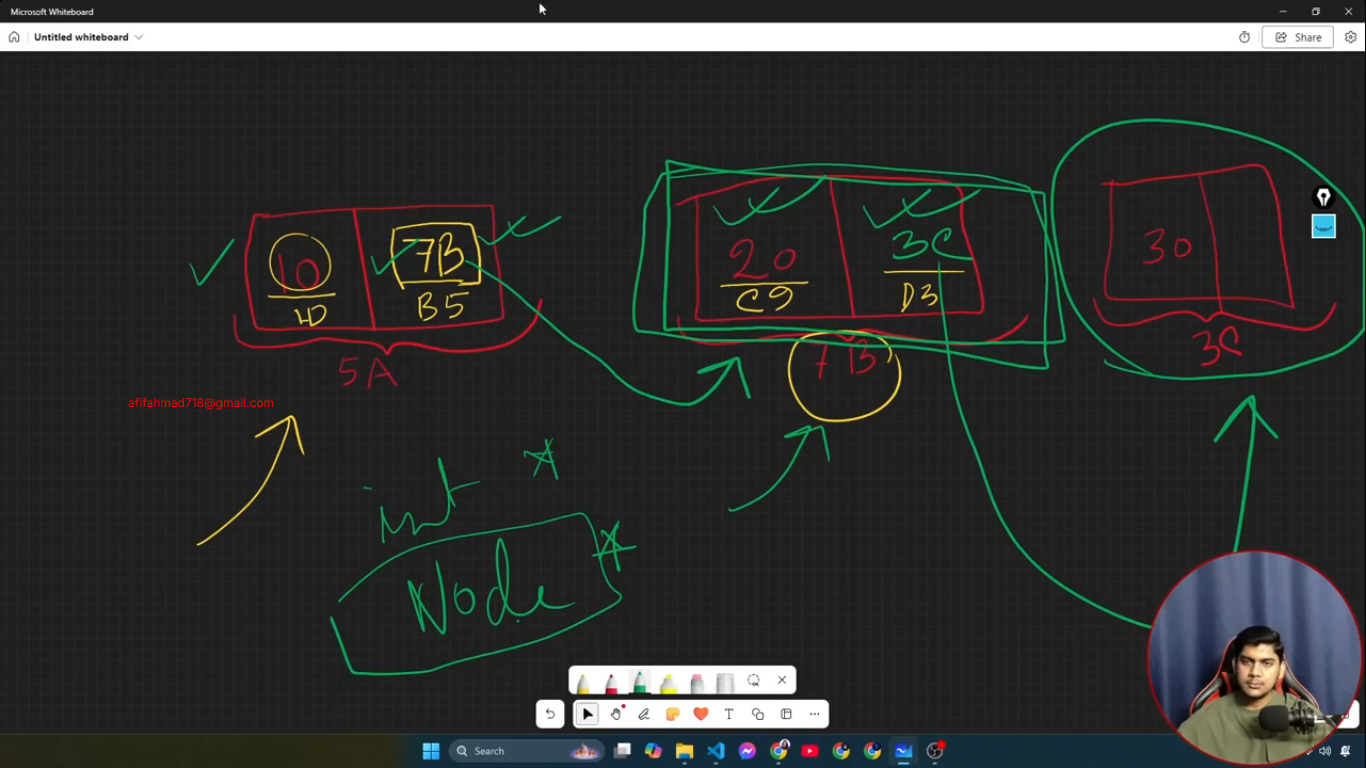 Microsoft Whiteboard
Untitled whiteboard
Share
10 7B
4D B5
5A
20 3C
C9 D3
7B
30
3C
afifahmad718@gmail.com
int *
Node *
T
Search